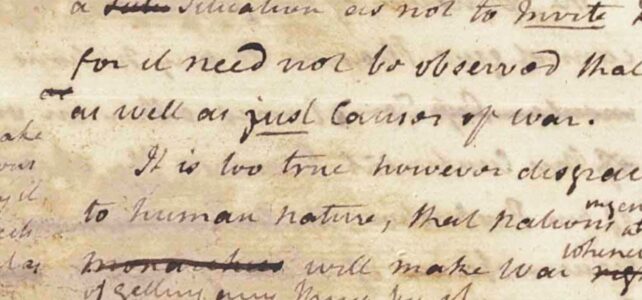 a situation as not to Invite
for it need not be observed that
as well as just Causes of war.
It is too true however disgrac
to human nature, that nations in gen
monarchies will make war whenev
of getting any thing by it
ake